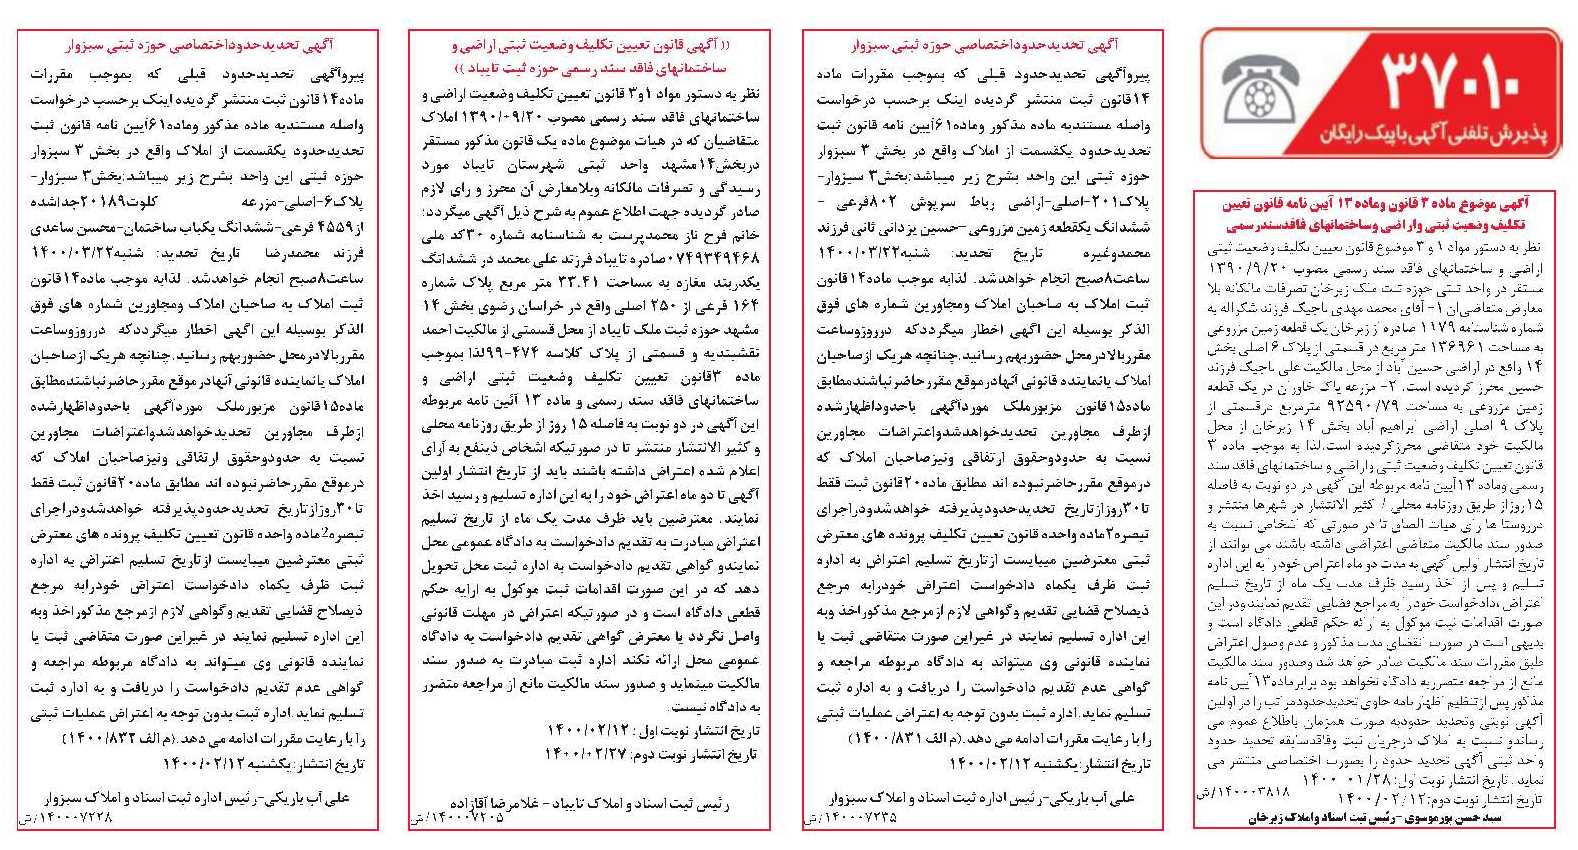 ۳۷۰۱۰
پذیرش تلفنی آگهی با پیک رایگان
آگهی موضوع ماده ۳ قانون وماده ۱۳ آیین نامه قانون تعیین
تکلیف وضعیت ثبتی واراضی وساختمانهای فاقدسندرسمی
نظر به دستور مواد ۱ و ۳ موضوع قانون تعیین تکلیف وضعیت ثبتی
اراضی و ساختمانهای فاقد سند رسمی مصوب ۱۳۹۰/۹/۲۰
مستقر در واحد ثبتی حوزه ثبت ملک زبرخان تصرفات مالکانه بلا
معارض متقاضی‌ان ۱- آقای محمد مهدی باجیک فرزند شکراله به
شماره شناسنامه ۱۱۷۹ صادره از زبرخان یک قطعه زمین مزروعی
به مساحت ۱۳۶۹۶۱ متر مربع در قسمتی از پلاک ۶ اصلی بخش
۱۴ واقع در اراضی حسین آباد از محل مالکیت علی باجیک فرزند
حسین محرز گردیده است. ۲- مزرعه پاک خاوران در یک قطعه
زمین مزروعی به مساحت ۹۲۵۹۰/۷۹ مترمربع درقسمتی از
پلاک ۹ اصلی اراضی ابراهیم آباد بخش ۱۴ زبرخان از محل
مالکیت خود متقاضی محرزگردیده است.لذا به موجب ماده ۳
قانون تعیین تکلیف وضعیت ثبتی واراضی و ساختمانهای فاقد سند
رسمی وماده ۱۳آیین نامه مربوطه این آگهی در دو نوبت به فاصله
۱۵روزاز طریق روزنامه محلی / کثیر الانتشار در شهرها منتشر و
درروستا ها رای هیات الصاق تا در صورتی که اشخاص نسبت به
صدور سند مالکیت متقاضی اعتراضی داشته باشند می توانند از
تاریخ انتشار اولین آگهی به مدت دو ماه اعتراض خود را به این اداره
تسلیم و پس از اخذ رسید ظرف مدت یک ماه از تاریخ تسلیم
اعتراض ،دادخواست خود را به مراجع قضایی تقدیم نمایندودر این
صورت اقدامات ثبت موکول به ارائه حکم قطعی دادگاه است و
بدیهی است در صورت انقضای مدت مذکور و عدم وصول اعتراض
طبق مقررات سند مالکیت صادر خواهد شد وصدور سند مالکیت
مانع از مراجعه متضرربه دادگاه نخواهد بود برابرماده۱۳آیین نامه
مذکور پس ازتنظیم اظهار نامه حاوی تحدیدحدودمراتب را در اولین
آگهی نوبتی وتحدید حدودبه صورت همزمان باطلاع عموم می
رساندو نسبت به املاک درجریان ثبت وفاقدسابقه تحدید حدود
واحد ثبتی آگهی تحدید حدود را بصورت اختصاصی منتشر می
نماید . تاریخ انتشار نوبت اول: ۱۴۰۰/۰۱/۲۸
تاریخ انتشار نوبت دوم: ۱۴۰۰/۰۲/۱۲
۱۴۰۰۰۳۸۱۸/ش
سید حسن پورموسوی –رئیس ثبت اسناد واملاک زبرخان
آگهی تحدیدحدوداختصاصی حوزه ثبتی سبزوار
پیروآگهی تحدیدحدود قبلی که بموجب مقررات ماده
۱۴قانون ثبت منتشر گردیده اینک برحسب درخواست
واصله مستندبه ماده مذکور وماده۶۱آیین نامه قانون ثبت
تحدیدحدود یکقسمت از املاک واقع در بخش ۳ سبزوار
حوزه ثبتی این واحد بشرح زیر میباشد:بخش۳ سبزوار-
پلاک۲۰۱-اصلی-اراضی رباط سرپوش ۸۰۲فرعی -
ششدانگ یکقطعه زمین مزروعی-حسین یزدانی ثانی فرزند
محمدوغیره تاریخ تحدید: شنبه۱۴۰۰/۰۳/۲۲
ساعت۸صبح انجام خواهدشد. لذابه موجب ماده۱۴قانون
ثبت املاک به صاحبان املاک ومجاورین شماره های فوق
الذکر بوسیله این اگهی اخطار میگرددکه درروزوساعت
مقرربالادرمحل حضوربهم رسانید.چنانچه هریک ازصاحبان
املاک یانماینده قانونی آنهادرموقع مقررحاضرنباشندمطابق
ماده۱۵قانون مزبورملک موردآگهی باحدوداظهارشده
ازطرف مجاورین تحدیدخواهدشدواعتراضات مجاورین
نسبت به حدودوحقوق ارتفاقی ونیزصاحبان املاک که
درموقع مقررحاضرنبوده اند مطابق ماده۲۰قانون ثبت فقط
تا۳۰روزازتاریخ تحدیدحدودپذیرفته خواهدشدودراجرای
تبصره۲ماده واحده قانون تعیین تکلیف پرونده های معترض
ثبتی معترضین میبایست ازتاریخ تسلیم اعتراض به اداره
ثبت ظرف یکماه دادخواست اعتراض خودرابه مرجع
ذیصلاح قضایی تقدیم وگواهی لازم ازمرجع مذکوراخذ وبه
این اداره تسلیم نمایند در غیراین صورت متقاضی ثبت یا
نماینده قانونی وی میتواند به دادگاه مربوطه مراجعه و
گواهی عدم تقدیم دادخواست را دریافت و به اداره ثبت
تسلیم نماید.اداره ثبت بدون توجه به اعتراض عملیات ثبتی
را با رعایت مقررات ادامه می دهد.(م الف ۱۴۰۰/۸۳۱)
تاریخ انتشار:یکشنبه ۱۴۰۰/۰۲/۱۲
علی آب باریکی-رئیس اداره ثبت اسناد و املاک سبزوار
۱۴۰۰۰۷۲۳۵/ش
(( آگهی قانون تعیین تکلیف وضعیت ثبتی اراضی و
ساختمانهای فاقد سند رسمی حوزه ثبت تایباد ))
نظر به دستور مواد ۱و۳ قانون تعیین تکلیف وضعیت اراضی و
ساختمانهای فاقد سند رسمی مصوب ۱۳۹۰/۰۹/۲۰ املاک
متقاضیان که در هیات موضوع ماده یک قانون مذکور مستقر
دربخش۱۴مشهد واحد ثبتی شهرستان تایباد مورد
رسیدگی و تصرفات مالکانه وبلامعارض آن محرز و رای لازم
صادر گردیده جهت اطلاع عموم به شرح ذیل آگهی میگردد:
خانم فرح ناز محمدپرست به شناسنامه شماره ۳۰کد ملی
۰۷۴۹۳۴۹۴۶۸صادره تایباد فرزند علی محمد در ششدانگ
یکدربند مغازه به مساحت ۳۳.۴۱ متر مربع پلاک شماره
۱۶۴ فرعی از ۲۵۰ اصلی واقع در خراسان رضوی بخش ۱۴
مشهد حوزه ثبت ملک تایباد از محل قسمتی از مالکیت احمد
نقشبندیه و قسمتی از پلاک کلاسه ۴۷۴-۹۹لذا بموجب
ماده ۳قانون تعیین تکلیف وضعیت ثبتی اراضی و
ساختمانهای فاقد سند رسمی و ماده ۱۳ آئین نامه مربوطه
این آگهی در دو نوبت به فاصله ۱۵ روز از طریق روزنامه محلی
و کثیر الانتشار منتشر تا در صورتیکه اشخاص ذینفع به آرای
اعلام شده اعتراض داشته باشند باید از تاریخ انتشار اولین
آگهی تا دو ماه اعتراض خود را به این اداره تسلیم و رسید اخذ
نمایند. معترضین باید ظرف مدت یک ماه از تاریخ تسلیم
اعتراض مبادرت به تقدیم دادخواست به دادگاه عمومی محل
نمایندو گواهی تقدیم دادخواست به اداره ثبت محل تحویل
دهد که در این صورت اقدامات ثبت موکول به ارایه حکم
قطعی دادگاه است و در صورتیکه اعتراض در مهلت قانونی
واصل نگردد یا معترض گواهی تقدیم دادخواست به دادگاه
عمومی محل ارائه نکند اداره ثبت مبادرت به صدور سند
مالکیت مینماید و صدور سند مالکیت مانع از مراجعه متضرر
به دادگاه نیست.
تاریخ انتشار نوبت اول : ۱۴۰۰/۰۲/۱۲
تاریخ انتشار نوبت دوم: ۱۴۰۰/۰۲/۲۷
رئیس ثبت اسناد و املاک تایباد - غلامرضا آقازاده
۱۴۰۰۰۷۲۰۵/ش
آگهی تحدیدحدوداختصاصی حوزه ثبتی سبزوار
پیروآگهی تحدیدحدود قبلی که بموجب مقررات
ماده۱۴قانون ثبت منتشر گردیده اینک برحسب درخواست
واصله مستندبه ماده مذکور وماده۶۱آیین نامه قانون ثبت
تحدیدحدود یکقسمت از املاک واقع در بخش ۳ سبزوار
حوزه ثبتی این واحد بشرح زیر میباشد:بخش۳ سبزوار-
پلاک۶-اصلی-مزرعه کلوت۲۰۱۸۹جداشده
از۴۵۵۹ فرعی-ششدانگ یکباب ساختمان-محسن ساعدی
فرزند محمدرضا تاریخ تحدید: شنبه۱۴۰۰/۰۳/۲۲
ساعت۸صبح انجام خواهدشد. لذابه موجب ماده۱۴قانون
ثبت املاک به صاحبان املاک ومجاورین شماره های فوق
الذکر بوسیله این اگهی اخطار میگرددکه درروزوساعت
مقرربالادرمحل حضوربهم رسانید.چنانچه هریک ازصاحبان
املاک یانماینده قانونی آنهادرموقع مقررحاضرنباشندمطابق
ماده۱۵قانون مزبورملک موردآگهی باحدوداظهارشده
ازطرف مجاورین تحدیدخواهدشدواعتراضات مجاورین
نسبت به حدودوحقوق ارتفاقی ونیزصاحبان املاک که
درموقع مقررحاضرنبوده اند مطابق ماده۲۰قانون ثبت فقط
تا۳۰روزازتاریخ تحدیدحدودپذیرفته خواهدشدودراجرای
تبصره2ماده واحده قانون تعیین تکلیف پرونده های معترض
ثبتی معترضین میبایست ازتاریخ تسلیم اعتراض به اداره
ثبت ظرف یکماه دادخواست اعتراض خودرابه مرجع
ذیصلاح قضایی تقدیم وگواهی لازم ازمرجع مذکوراخذ وبه
این اداره تسلیم نمایند در غیراین صورت متقاضی ثبت یا
نماینده قانونی وی میتواند به دادگاه مربوطه مراجعه و
گواهی عدم تقدیم دادخواست را دریافت و به اداره ثبت
تسلیم نماید.اداره ثبت بدون توجه به اعتراض عملیات ثبتی
را با رعایت مقررات ادامه می دهد.(م الف ۱۴۰۰/۸۳۲)
تاریخ انتشار:یکشنبه ۱۴۰۰/۰۲/۱۲
علی آب باریکی-رئیس اداره ثبت اسناد و املاک سبزوار
۱۴۰۰۰۷۲۲۸/ش